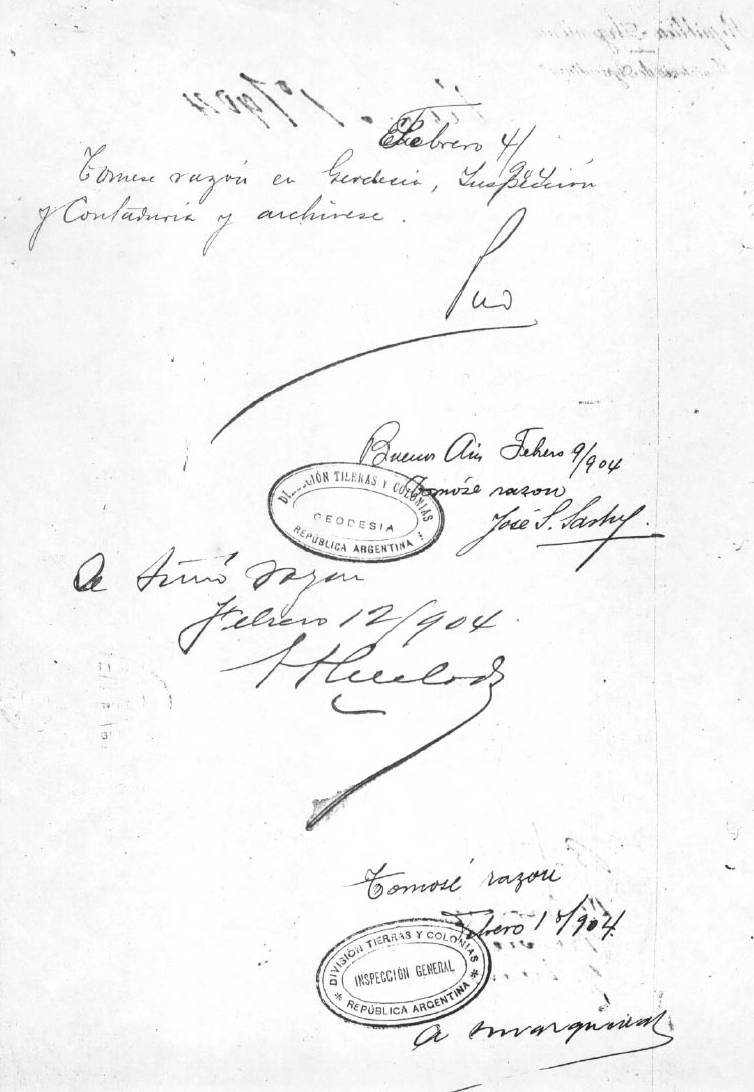 Febrero 4/904
Tomese razón en Geodesia, Inspección
y Contaduría y archívese.
Buenos Aires Febrero 9/904
Tomóse razon
José S.
DIVISIÓN TIERRAS Y COLONIAS
GEODESIA
REPÚBLICA ARGENTINA
Se tomó razon
Febrero 12/904
Tomosé razon
Febrero 1 /904
DIVISIÓN TIERRAS Y COLONIAS
INSPECCIÓN GENERAL
REPÚBLICA ARGENTINA